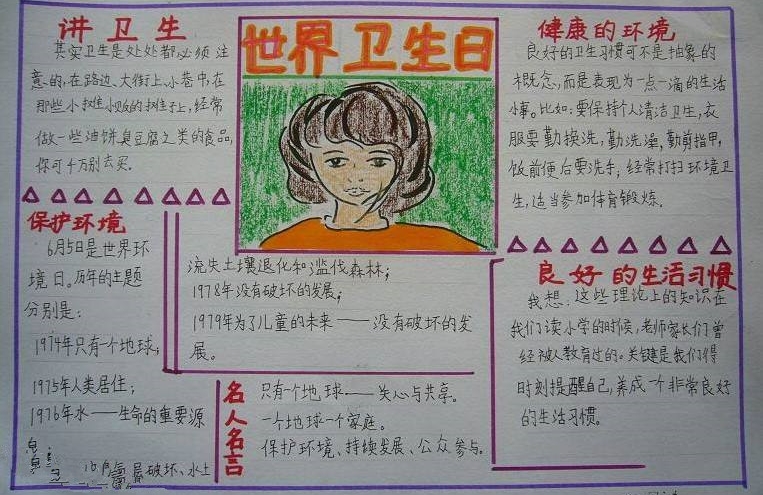 讲卫生
其实卫生是处处都必须注
意的,在路边、大街上、小巷中,在
那些小摊小贩的摊子上,经常
做一些油饼臭豆腐之类的食品,
你可千万别去买。
保护环境
6月5日是世界环
境日。历年的主题
分别是:
1974年只有一个地球;
1975年人类居住;
1976年水——生命的重要源
层破坏、水土
世界卫生日
流失土壤退化和滥伐森林;
1978年没有破坏的发展;
1979年为了儿童的未来——没有破坏的发
展。
名人名言
只有一个地球——关心与共享。
一个地球一个家庭。
保护环境、持续发展、公众参与。
健康的环境
良好的卫生习惯可不是抽象的
概念,而是表现为一点一滴的生活
小事。比如:要保持个人清洁卫生,衣
服要勤换洗,勤洗澡,勤剪指甲,
饭前便后要洗手,经常打扫环境卫
生,适当参加体育锻炼。
良好的生活习惯
我想,这些理论上的知识在
我们读小学的时候,老师家长们曾
经被人教育过的。关键是我们得
时刻提醒自己,养成一个非常良好
的生活习惯。